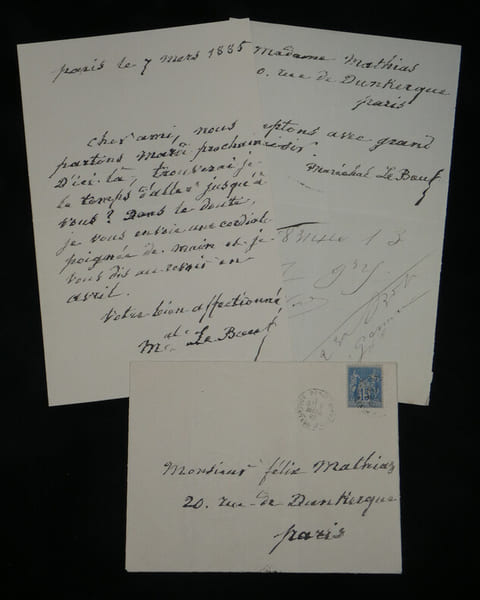 paris le 7 mars 1885
cher ami, nous
partons mardi prochain
D'ici là, trouverai-je
le temps d'aller jusqu'à
vous? Dans le doute,
je vous envoie une cordiale
poignée de main et je
vous dis au revoir en
avril.
Votre bien affectionné
Le Bœuf
Madame Mathias
0, rue de Dunkerque
paris
eptons avec grand
isir
Maréchal Le Bœuf
13
15
Monsieur félix Mathias
20, rue de Dunkerque
paris